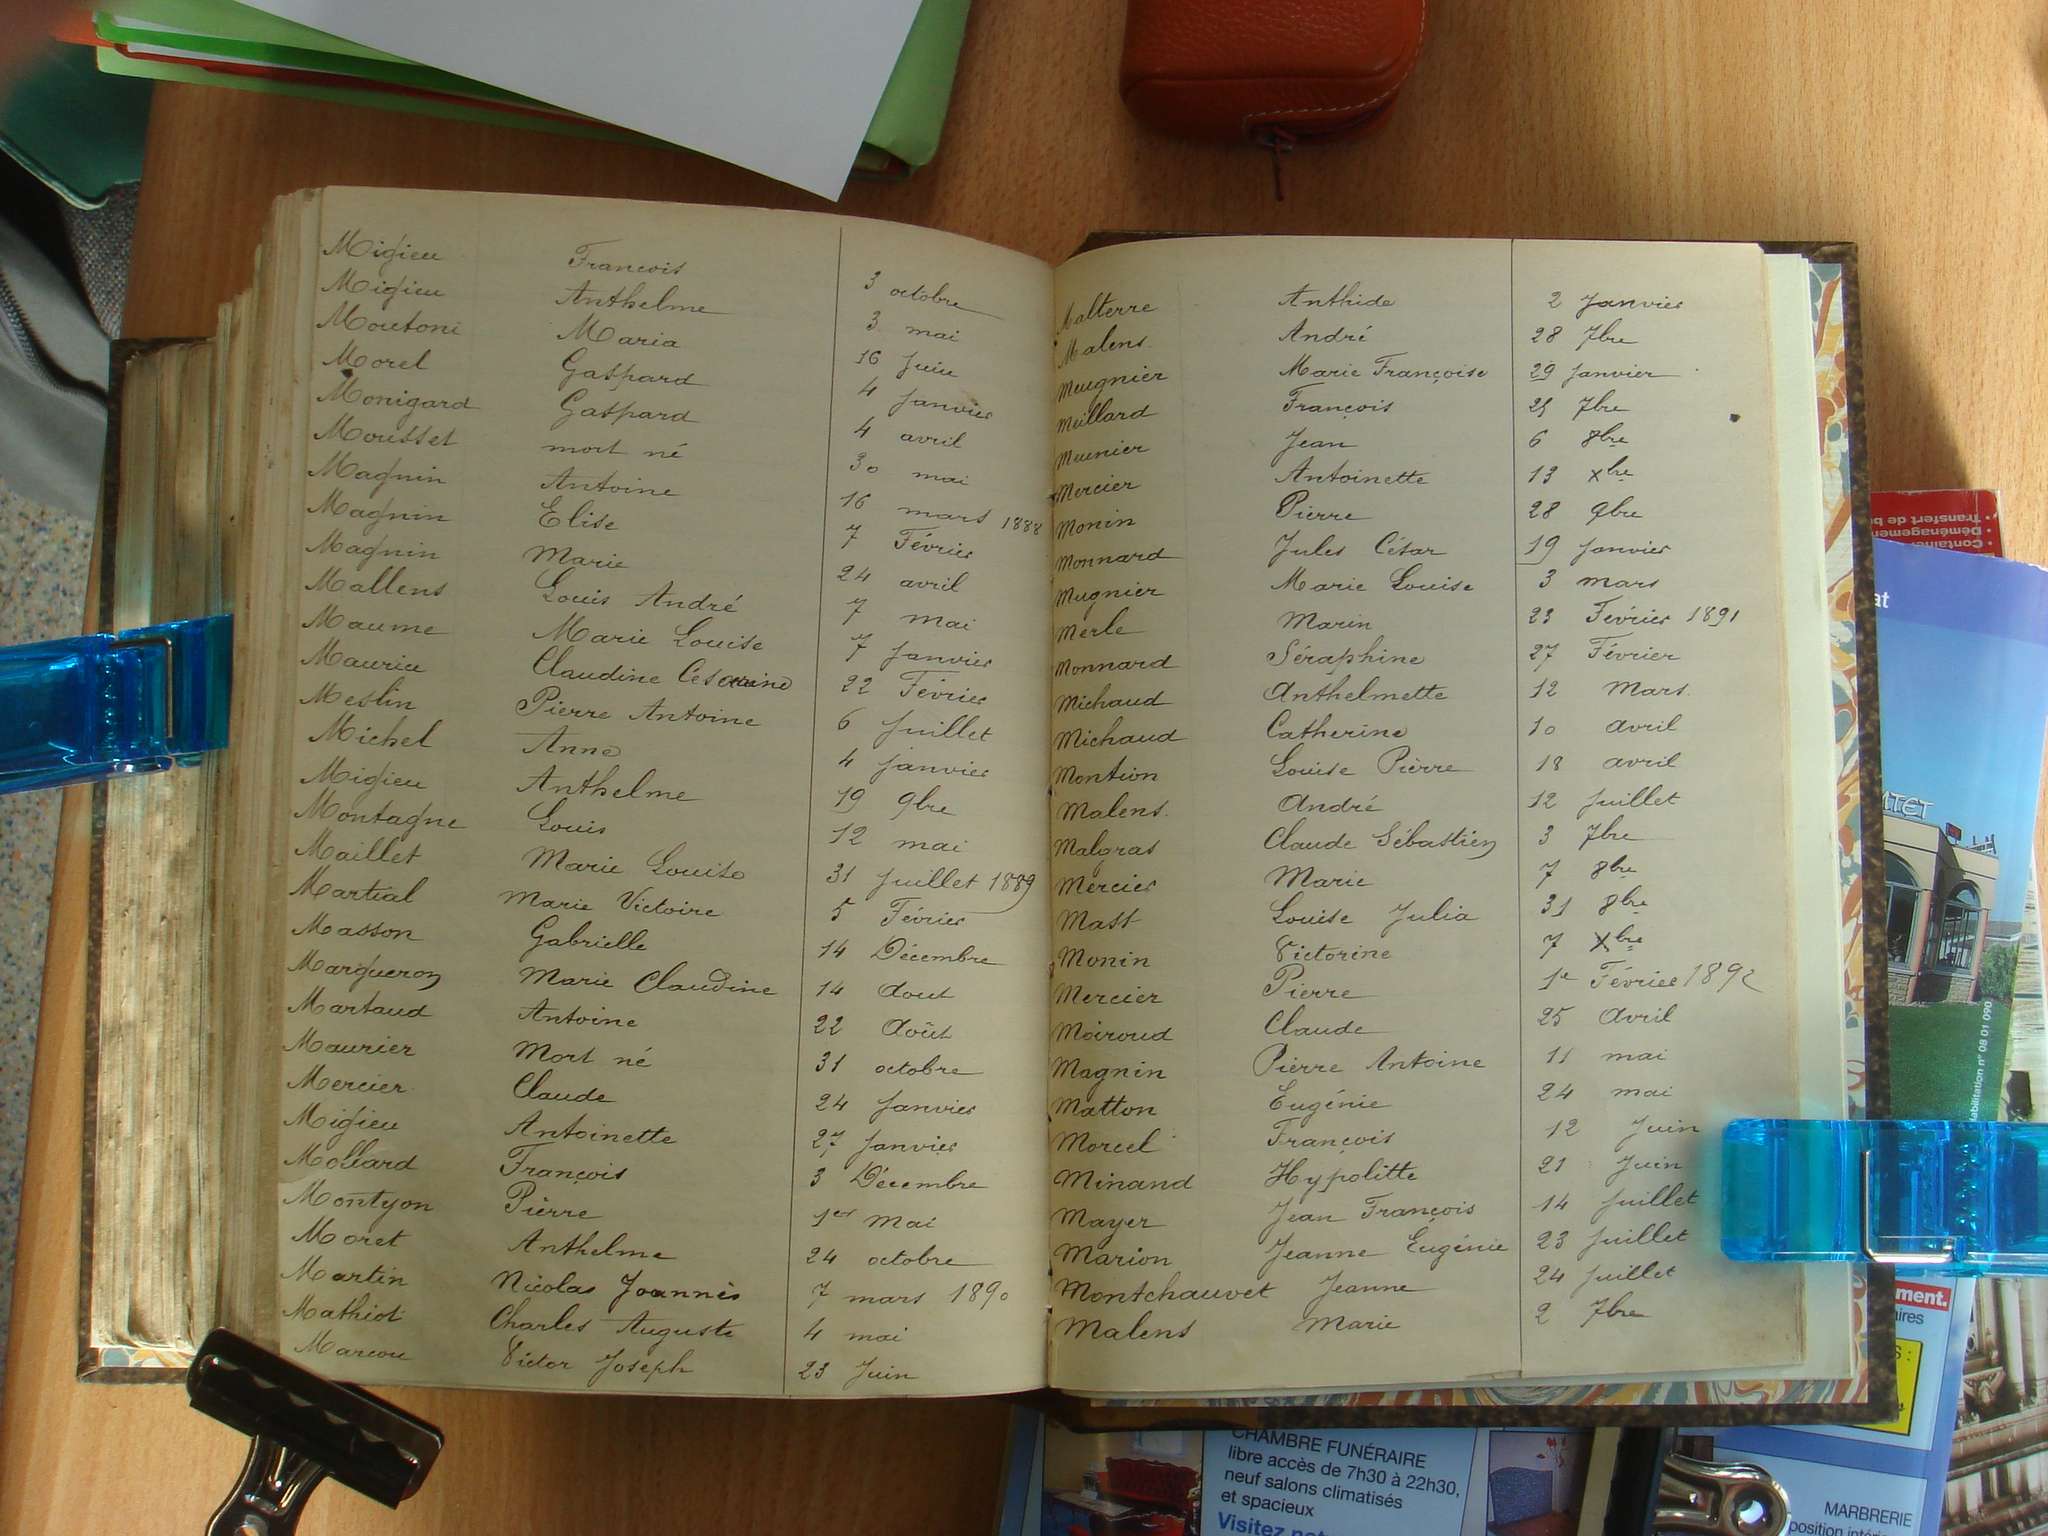 Migieu François 3 octobre
Migieu Anthelme 3 mai
Moutoni Maria 16 Juin
Morel Gaspard 4 Janvier
Monigard Gaspard 4 avril
Mousset mort né 30 mai
Magnin Antoine 16 mars 1888
Magnin Elise 7 Février
Magnin Marie 24 avril
Mallens Louis André 7 mai
Maume Marie Louise 7 Janvier
Maurin Claudine 22 Février
Meslin Pierre Antoine 6 Juillet
Michel Anne 4 Janvier
Migieu Anthelme 19 9bre
Montagne Louis 12 mai
Maillet Marie Louise 31 Juillet 1889
Martial Marie Victoire 5 Février
Masson Gabrielle 14 Décembre
Margueron Marie Claudine 14 Aout
Martaud Antoine 22 Août
Maurier Mort né 31 octobre
Mercier Claude 24 Janvier
Migieu Antoinette 27 Janvier
Mollard François 3 Décembre
Montyon Pierre 1er Mai
Moret Anthelme 24 octobre
Martin Nicolas Joannès 7 mars 1890
Mathiot Charles Auguste 4 mai
Marcou Victor Joseph 23 Juin
Malterre Anthide 2 Janvier
Malens André 28 7bre
Meugnier Marie Françoise 29 Janvier
Meillard François 25 7bre
Meunier Jean 6 8bre
Mercier Antoinette 13 Xbre
Monin Pierre 28 9bre
Monnard Jules César 19 Janvier
Mugnier Marie Louise 3 mars
Merle Marin 23 Février 1891
Monnard Séraphine 27 Février
Michaud Anthelmette 12 Mars
Michaud Catherine 10 avril
Montion Louise Pièrre 18 avril
Malens André 12 Juillet
Malgras Claude Sébastien 3 7bre
Mercier Marie 7 8bre
Mast Louise Julia 31 8bre
Monin Victorine 7 Xbre
Mercier Pierre 1er Février 1892
Moiroud Claude 25 Avril
Magnin Pierre Antoine 11 mai
Matton Eugénie 24 mai
Morcel François 12 Juin
Minand Hypolitte 21 Juin
Mayer Jean François 14 Juillet
Marion Jeanne Eugénie 23 Juillet
Montchauvet Jeanne 24 Juillet
Malens Marie 2 7bre
• Transfert de
• Déménagement
• Container
at
abilitation n° 08 01 090
ment.
aires
CHAMBRE FUNÉRAIRE
libre accès de 7h30 à 22h30,
neuf salons climatisés
et spacieux
Visitez
MARBRERIE